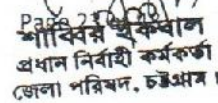 শাব্বির ইকবাল
প্রধান নির্বাহী কর্মকর্তা
জেলা পরিষদ, চট্টগ্রাম